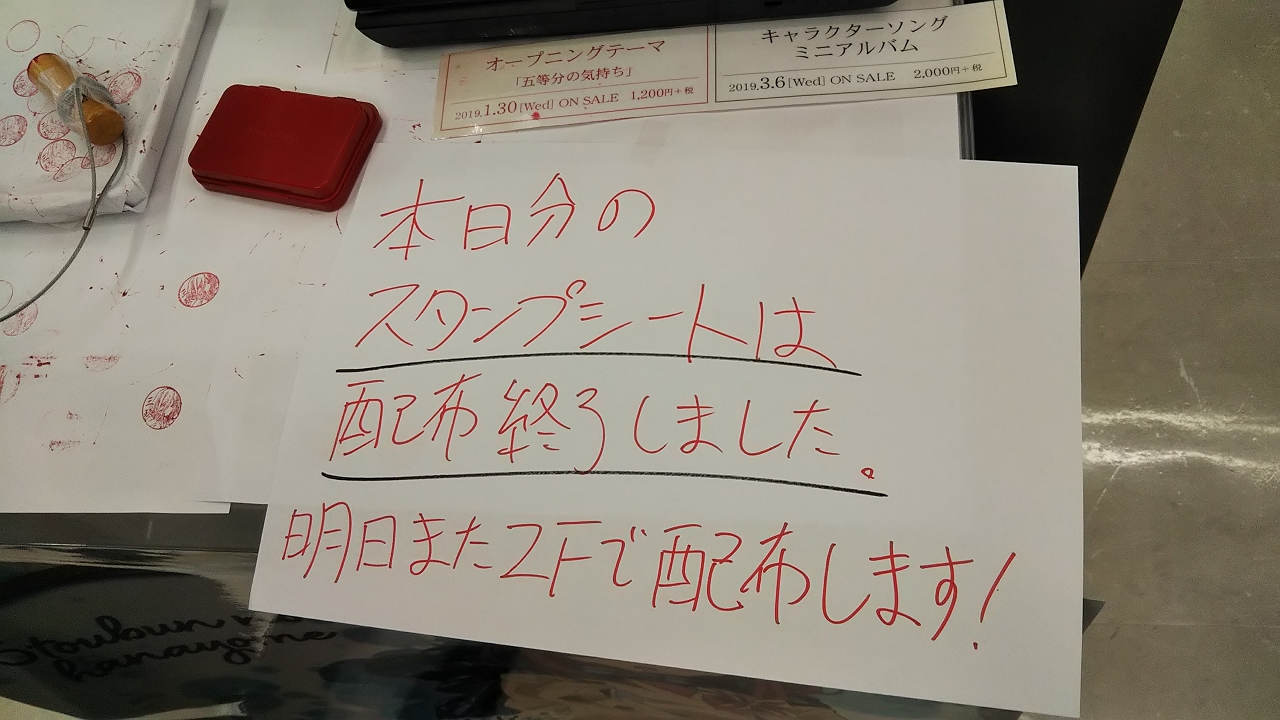 オープニングテーマ
「五等分の気持ち」
2019.1.30[Wed] ON SALE 1,200円+税
キャラクターソング
ミニアルバム
2019.3.6[Wed] ON SALE 2,000円+税
本日分の
スタンプシートは
配布終了しました。
明日また2Fで配布します!
5toubun no
hanayome